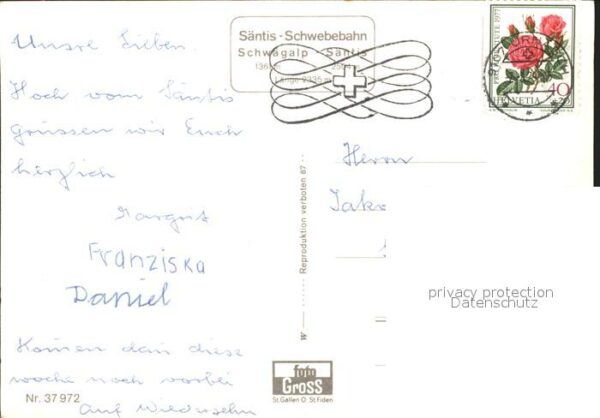 Unsre Lieben.
Hoch vom Säntis
grüssen wir Euch
herzlich
Margrit
Franziska
Daniel
Kommen dan diese
woche noch vorbei
Auf Wiedersehn
Nr. 37 972
Säntis - Schwebebahn
Schwägalp - Säntis
Länge 2235 m
PRO JUVENTUTE 1977
HELVETIA 40
+20
Herrn
Jak
privacy protection
Datenschutz
Reproduktion verboten 67
W
foto
Gross
St.Gallen O St.Fiden